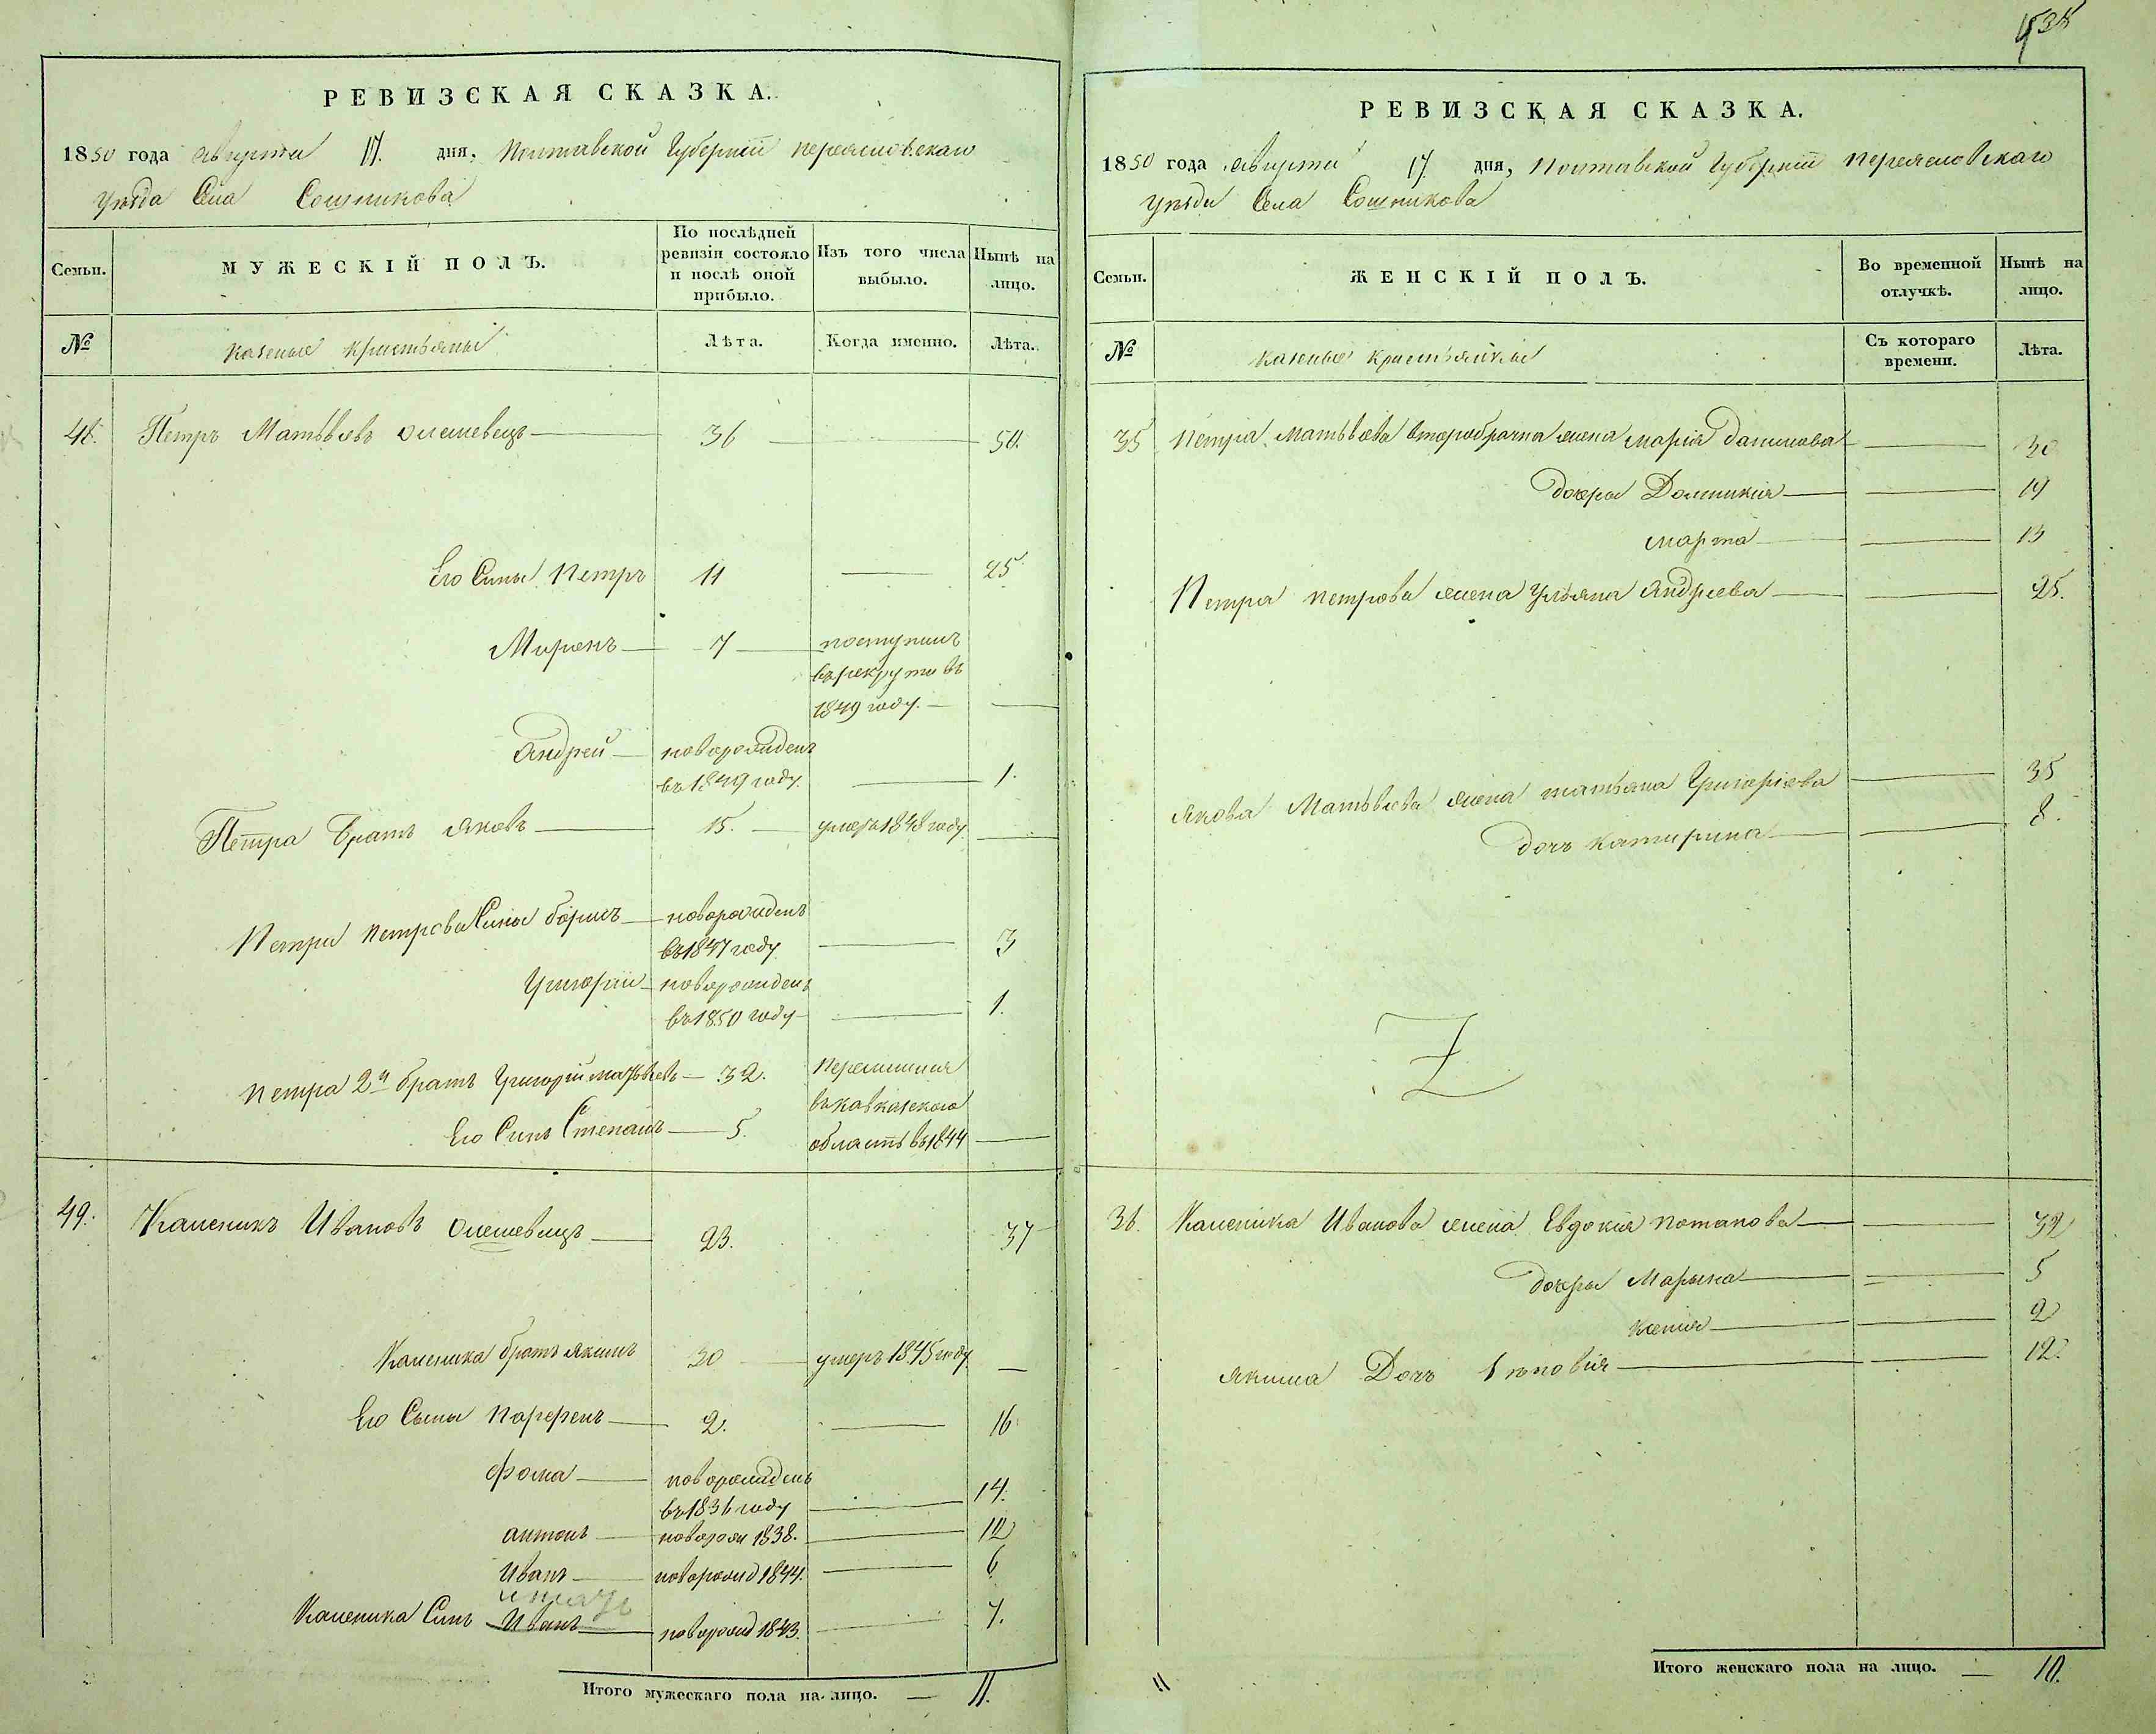 538
РЕВИЗСКАЯ СКАЗКА.
1850 года Августа 17. дня, Полтавской Губерніи Переясловскаго
Уезда Села Сошникова
Семьи.
МУЖЕСКІЙ ПОЛЪ.
По послѣдней ревизіи состояло и послѣ оной прибыло.
Изъ того числа выбыло.
Нынѣ на лицо.
№
казеные крестьяны
Лѣта.
Когда именно.
Лѣта.
48. Петръ Матвѣевъ Олешевецъ 36 50.
Его Сыны Петръ 11 25
Миронъ 7 поступилъ
въ рекруты въ
1849 году.
Андрей новорожденъ
въ 1849 году. 1.
Петра Братъ Яковъ 15. умеръ 1848 году
Петра Петрова Сыны Борисъ новорожденъ
въ 1847 году 3
Григорій новорожденъ
въ 1850 году 1.
Петра 2й братъ Григорій Матвѣевъ 32. Перешшия
Его Сынъ Степанъ 5. въ Кавказскою
область въ 1844
49. Каленикъ Ивановъ Олешевецъ 23. 37
Каленика братъ Якимъ 30 умеръ 1845 году
Его Сыны Парфенъ 2. 16
Фома новорожденъ
въ 1836 году 14.
Антонъ новорож 1838. 12
Иванъ новорожд 1844. 6
Каленика Сынъ Иванъ новорожд 1843. 7.
Итого мужескаго пола на лицо. — 11.
РЕВИЗСКАЯ СКАЗКА.
1850 года Августа 17. дня, Полтавской Губерніи Переясловскаго
Уезда Села Сошникова
Семьи.
ЖЕНСКІЙ ПОЛЪ.
Во временной отлучкѣ.
Нынѣ на лицо.
№
казеные крестьянки
Съ котораго времени.
Лѣта.
35 Петра Матвѣева второбрачна жена Марія Данилова 30
дочери Доминикія 19
Марта 13
Петра Петрова жена Ульяна Андреева 25.
Якова Матвѣева жена Татьяна Григоріева 35
дочь Катирина 8.
Z
36. Каленика Иванова жена Евдокія Потапова 32
дочери Марына 5
Ксенія 2
Якима Дочь 12.
Итого женскаго пола на лицо. — 10.
11